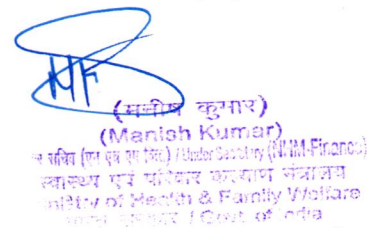 (मनीष कुमार)
(Manish Kumar)
सचिव (एन एच एम वित्त) / Under Secretary (NHM-Finance)
स्वास्थ्य एवं परिवार कल्याण मंत्रालय
Ministry of Health & Family Welfare
भारत सरकार / Govt. of India